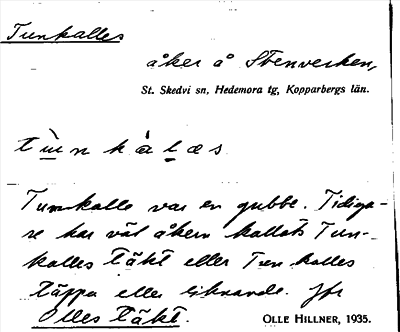 Tunkalles
åker å Stenvreten,
St. Skedvi sn, Hedemora tg, Kopparbergs län.
tùnkàlæs
Tunkalle var en gubbe. Tidiga-
re har väl åkern kallats Tun-
kalles täkt eller Tunkalles
täppa eller liknande. Jfr
Olles täkt.
OLLE HILLNER, 1935.